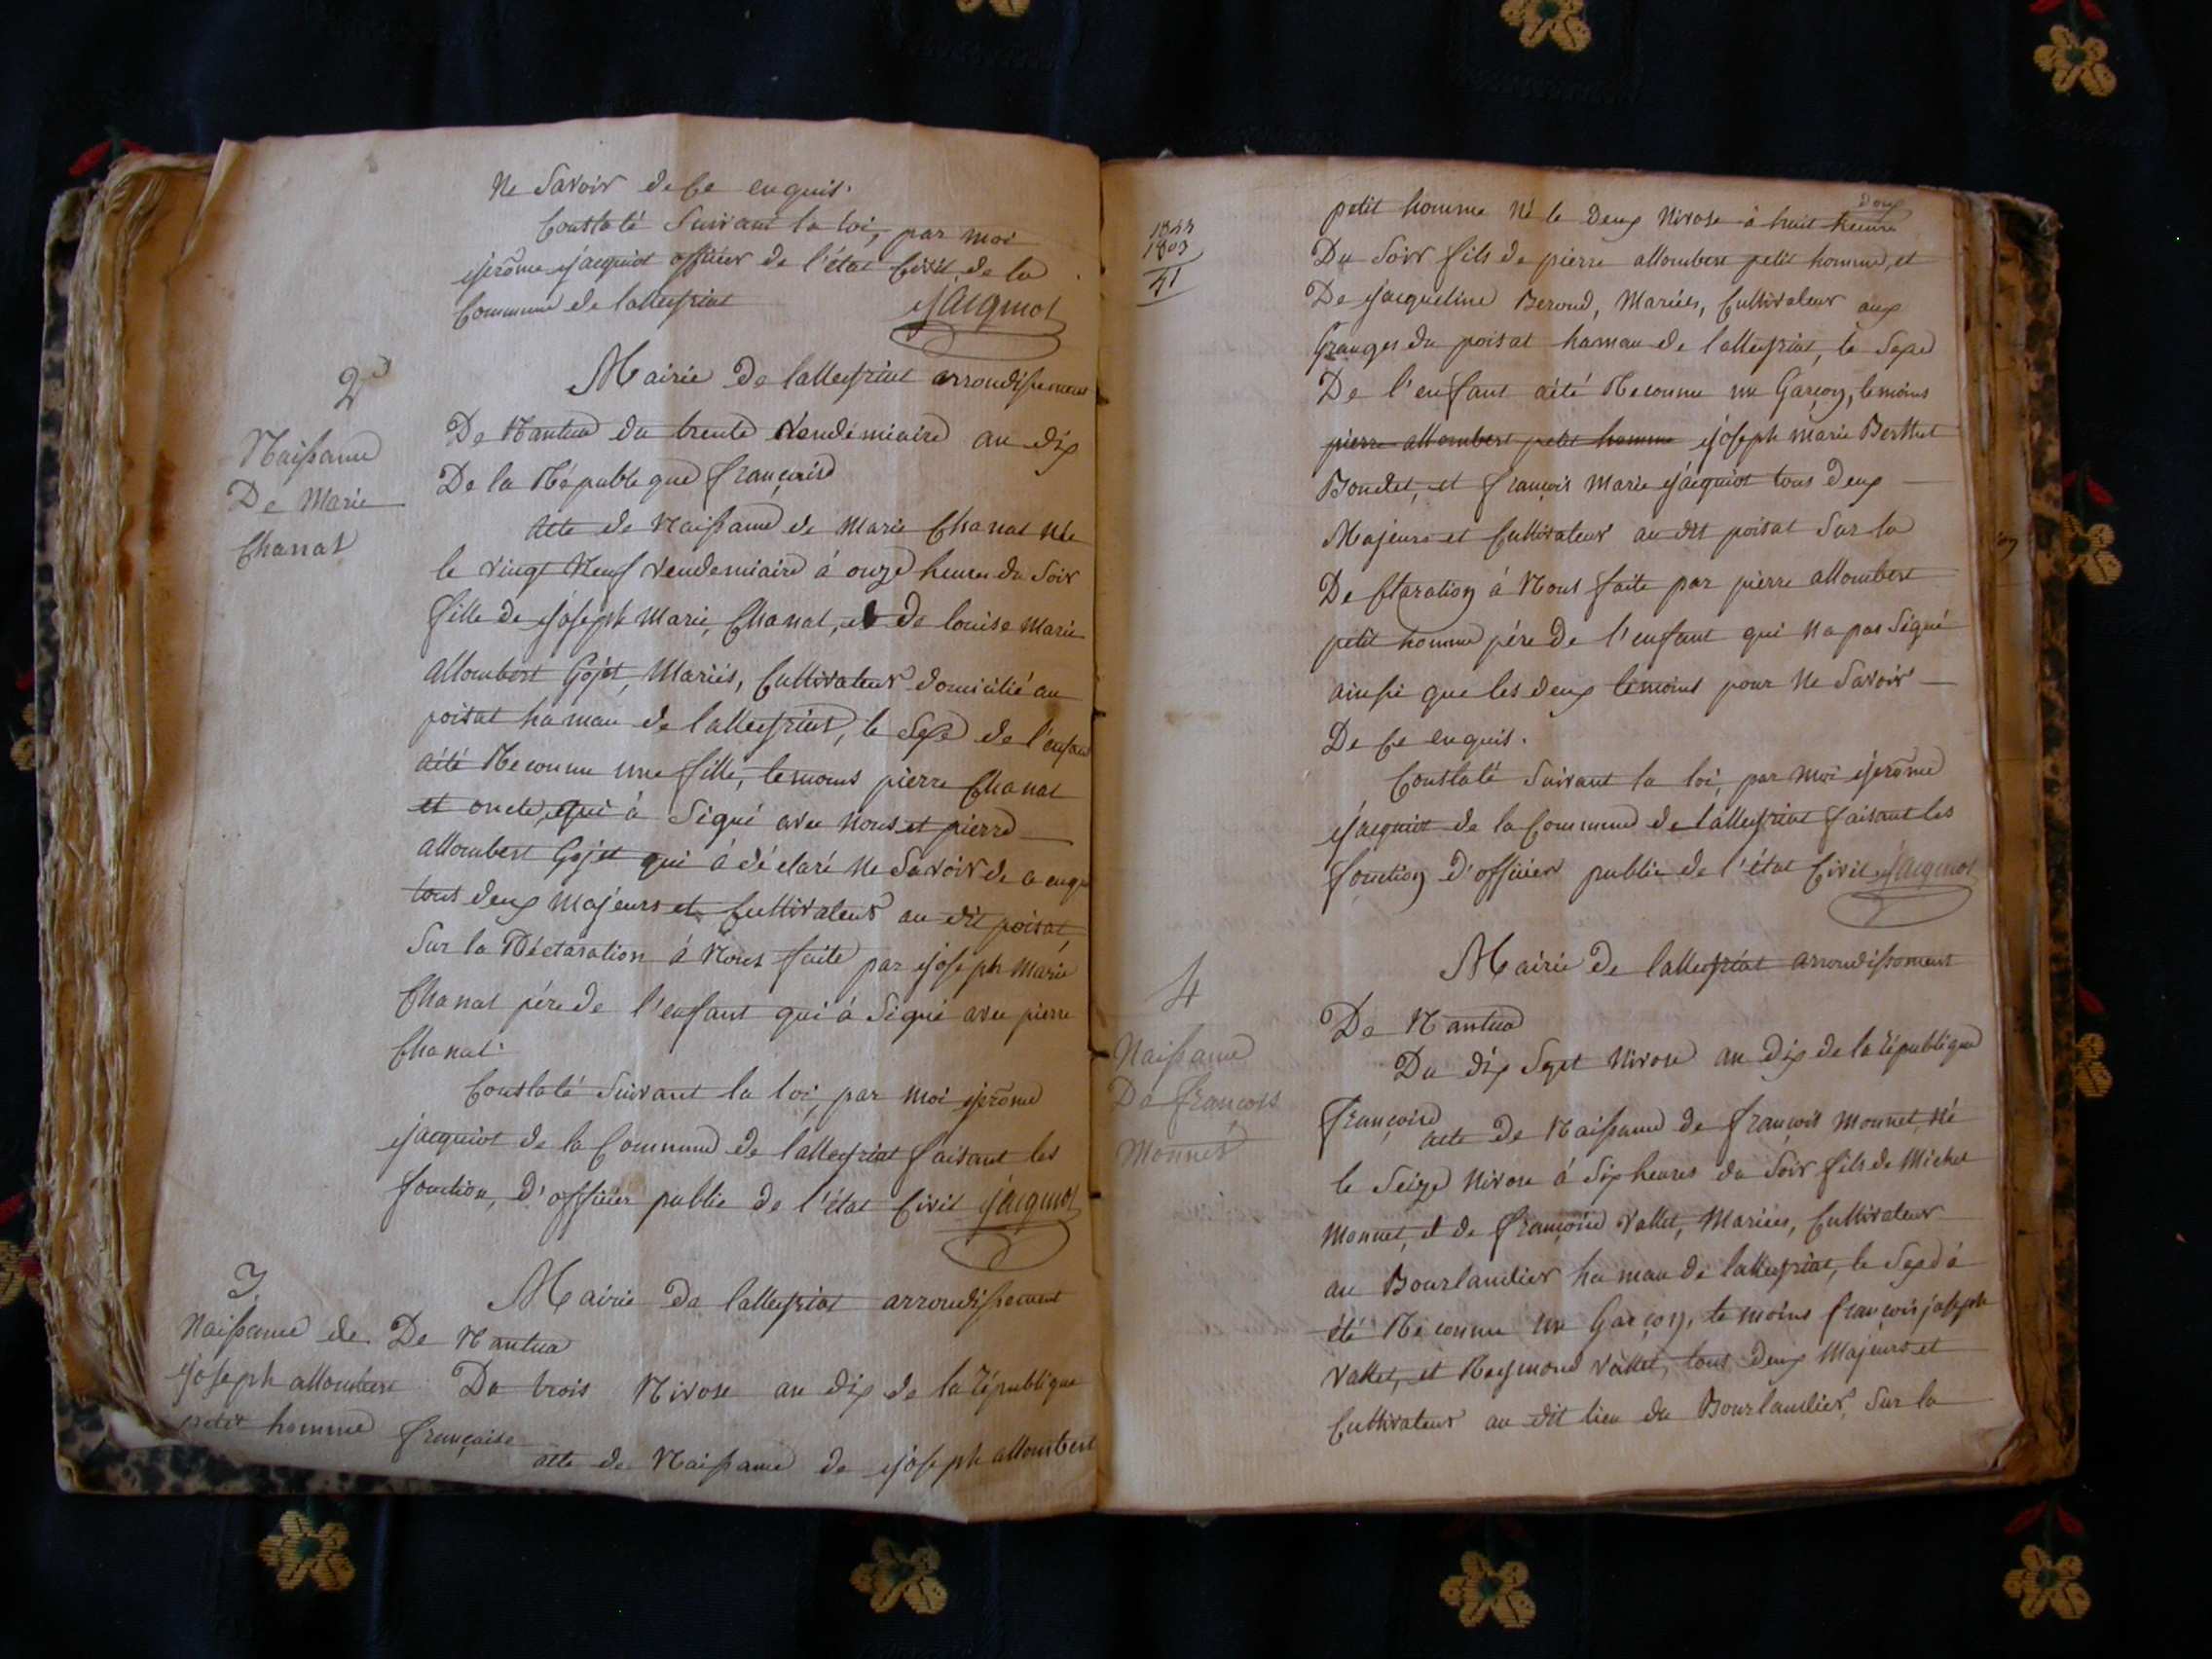 Ne Savoir de Ce enquis.
Constaté Suivant la loi, par moi
jerôme jacquiot officier de l'état Civil de la
Commune de lalleyriat jacquiot
Mairie De lalleyriat arrondissement
2
De Nantua du trente Vendemiaire an dix
De la République françaisse
Naissance
De Marie
Chanat
Acte de Naissance de Marie Chanat Née
le vingt Neuf Vendemiaire à onze heures du Soir
fille de joseph Marie, Chanat, et de louise Marie
allombert Gojet, Mariés, Cultivateur domicilié au
poisat hamau de lalleyriat, le Sexe de l'enfant
aété Reconnu une fille, temoins pierre Chanat
et oncle, qui à Signé avec Nous et pierre
allombert Gojet qui à déclaré Ne Savoir de ce enquis
tous deux Majeurs et Cultivateur au dit poisat
Sur la Déclaration à Nous faite par joseph Marie
Chanat pére de l'enfant qui à Signé avec pierre
Chanat.
Constaté Suivant la loi, par moi jerôme
jacquiot de la Commune de lalleyriat faisant les
fonction, d'officier public de l'état Civil jacquiot
3
Mairie De lalleyriat arrondissement
De Nantua
Naissance de
joseph allombert
petit homme
Du trois Nivose an dix de la République
française
acte de Naissance de joseph allombert
1844
1803
41
petit homme Né le Deux Nivose à huit heure
Du Soir fils de pierre allombert petit homme, et
De jacqueline Beroud, Mariés, Cultivateur aux
Granges du poisat hamau de lalleyriat, le Sexe
De l'enfant aété Reconnu un Garçon, temoins
pierre allombert petit homme joseph marie Berthet
Boudet, et françois Marie jacquiot tous Deux
Majeurs et Cultivateur au dit poisat Sur la
Declaration à Nous faite par pierre allombert
petit homme pére De l'enfant qui Na pas Signé
ainssi que les deux temoins pour Ne Savoir
De Ce enquis.
Constaté Suivant la loi, par moi jerôme
jacquiot de la Commune de lalleyriat faisant les
fonction D'officier public de l'état Civil jacquiot
Mairie De lalleyriat arrondissement
4
De Nantua
Naissance
De françois
Monnet
Du dix Sept Nivose an dix de la République
françoise
acte de Naissance de françois Monnet, Né
le Seize Nivose à Six heures du Soir fils de Michel
Monnet, et de françoise Vallet, Mariées, Cultivateur
au Bourlandier hamau de lalleyriat, le Sexe à
été Reconnu un Garçon, temoins françois joseph
Vallet, et Reymond Vallet, tous Deux Majeurs et
Cultivateur au dit lieu du Bourlandier, Sur la